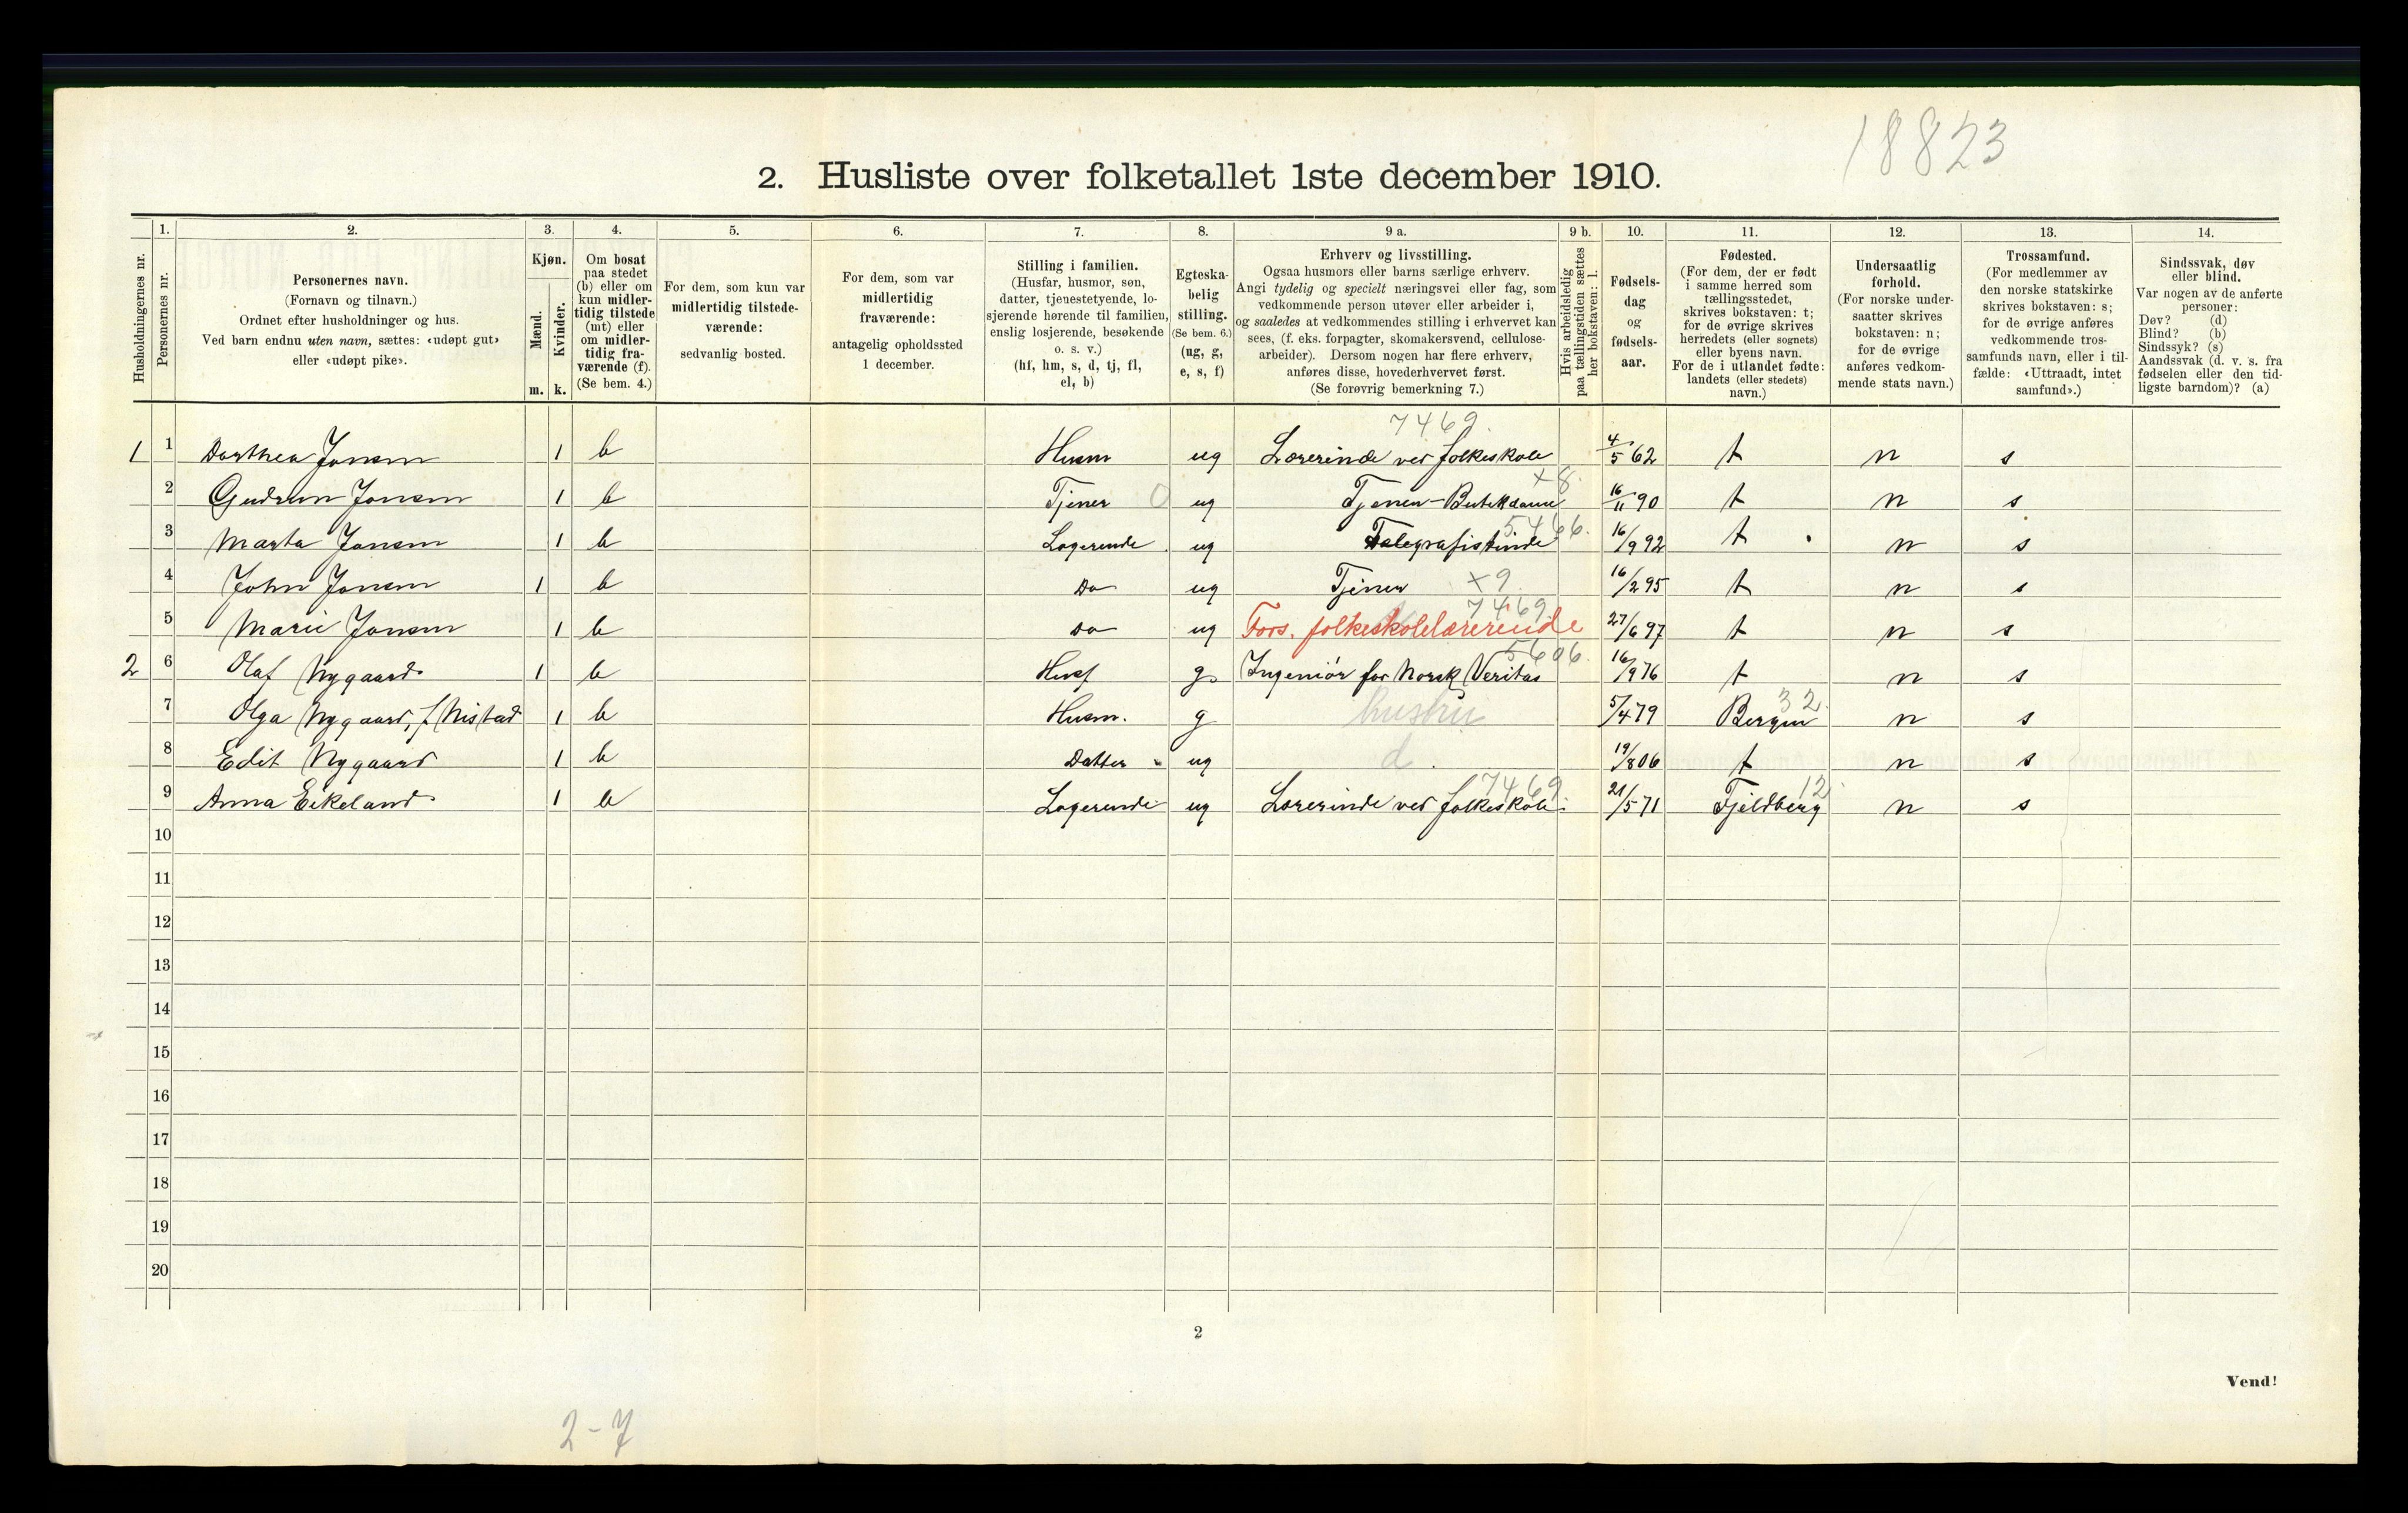 18823
2. Husliste over folketallet 1ste december 1910.
Husholdningernes nr.
1.
Personernes nr.
2.
Personernes navn.
(Fornavn og tilnavn.)
Ordnet efter husholdninger og hus.
Ved barn endnu uten navn, sættes: «udøpt gut»
eller «udøpt pike».
3.
Kjøn.
Mænd.
Kvinder.
m. k.
4.
Om bosat
paa stedet
(b) eller om
kun midler-
tidig tilstede
(mt) eller
om midler-
tidig fra-
værende (f).
(Se bem. 4.)
5.
For dem, som kun var
midlertidig tilstede-
værende:
sedvanlig bosted.
6.
For dem, som var
midlertidig
fraværende:
antagelig opholdssted
1 december.
7.
Stilling i familien.
(Husfar, husmor, søn,
datter, tjenestetyende, lo-
sjerende hørende til familien,
enslig losjerende, besøkende
o. s. v.)
(hf, hm, s, d, tj, fl,
el, b)
8.
Egteska-
belig
stilling.
(Se bem. 6.)
(ug, g,
e, s, f)
9 a.
Erhverv og livsstilling.
Ogsaa husmors eller barns særlige erhverv.
Angi tydelig og specielt næringsvei eller fag, som
vedkommende person utøver eller arbeider i,
og saaledes at vedkommendes stilling i erhvervet kan
sees, (f. eks. forpagter, skomakersvend, cellulose-
arbeider). Dersom nogen har flere erhverv,
anføres disse, hovederhvervet først.
(Se forøvrig bemerkning 7.)
9 b.
Hvis arbeidsledig
paa tællingstiden sættes
her bokstaven: l.
10.
Fødsels-
dag
og
fødsels-
aar.
11.
Fødested.
(For dem, der er født
i samme herred som
tællingsstedet,
skrives bokstaven: t;
for de øvrige skrives
herredets (eller sognets)
eller byens navn.
For de i utlandet fødte:
landets (eller stedets)
navn.)
12.
Undersaatlig
forhold.
(For norske under-
saatter skrives
bokstaven: n;
for de øvrige
anføres vedkom-
mende stats navn.)
13.
Trossamfund.
(For medlemmer av
den norske statskirke
skrives bokstaven: s;
for de øvrige anføres
vedkommende tros-
samfunds navn, eller i til-
fælde: «Uttraadt, intet
samfund».)
14.
Sindssvak, døv
eller blind.
Var nogen av de anførte
personer:
Døv? (d)
Blind? (b)
Sindssyk? (s)
Aandssvak (d. v. s. fra
fødselen eller den tid-
ligste barndom)? (a)
7469.
1 1 Dorthea Jonsen 1 b Husm ug Lærerinde ved folkeskole 4/5 62 t n s
x8.
2 Gudrun Jonsen 1 b Tjener 0 ug Tjener - Butikdame 16/11 90 t n s
5466.
3 Marta Jonsen 1 b Logerende ug Telegrafistinde 16/9 92 t n s
4 John Jonsen 1 b Do ug Tjener x9 16/2 95 t n s
7469
5 Marie Jonsen 1 b Do ug Fors. folkeskolelærerinde 27/6 97 t n s
5606.
2 6 Olaf Nygaard 1 b Husf g Ingeniør for Norsk Veritas 16/9 76 t n s
32.
7 Olga Nygaard, f. Nistad 1 b Husm. g hustru 5/4 79 Bergen n s
8 Edit Nygaard 1 b Datter ug d 19/8 06 t n s
7469 12.
9 Anna Eikeland 1 b Logerende ug Lærerinde ved folkeskole. 21/5 71 Fjeldberg n s
10
11
12
13
14
15
16
17
18
19
20
2
Vend!
2-7